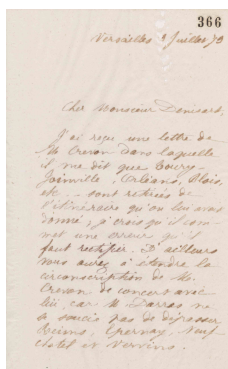 366
Versailles 9 Juillet 79
Cher Monsieur Denisart,
J'ai reçu une lettre de
M. Crevon dans laquelle
il me dit que
Joinville, Orléans, Blois,
etc - sont retirées de
l'itinéraire qu'on lui avait
donné, je crois qu'il com-
met une erreur qu'il
faut rectifier. D'ailleurs
vous aurez à étendre la
circonscription de M.
Crevon de concert avec
lui, car M. Darras ne
se soucie pas de dépasser
Reims, Epernay, Neuf
chatel et Vervins.